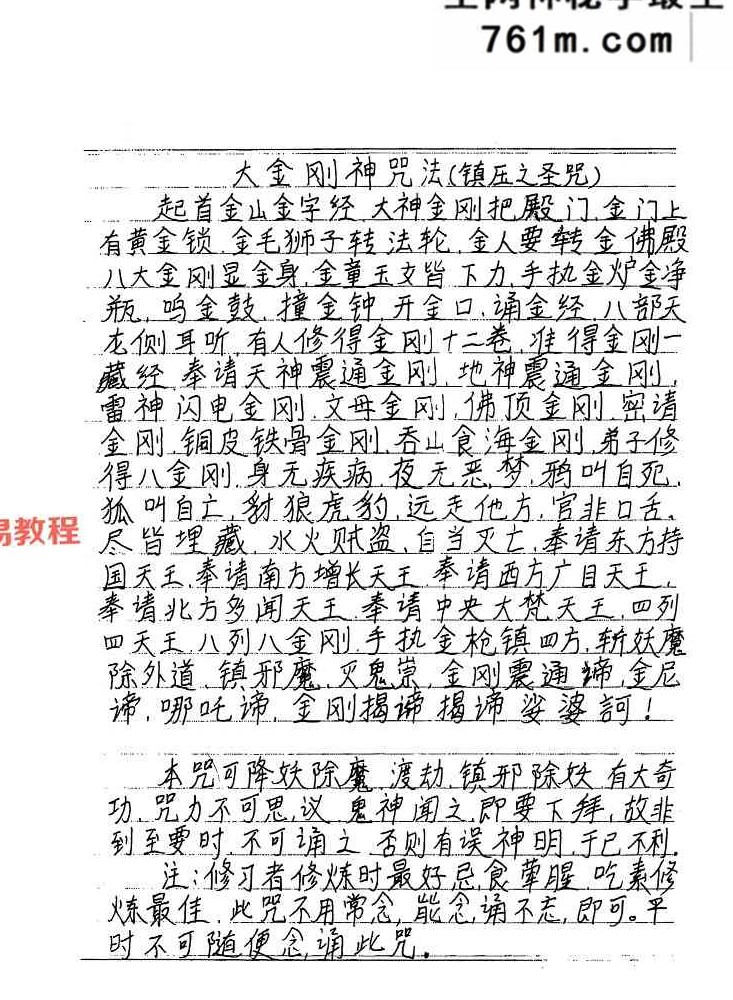 761m.com
大金刚神咒法(镇压之圣咒)
起首金山金字经.大神金刚把殿门.金门上
有黄金锁.金毛狮子转法轮.金人要转金佛殿
八大金刚显金身.金童玉文皆下力.手执金炉金净
瓶.呜金鼓.撞金钟.开金口.诵金经.八部天
龙侧耳听.有人修得金刚十二卷.准得金刚一
藏经.奉请天神震通金刚.地神震通金刚.
雷神闪电金刚.文母金刚.佛顶金刚.密请
金刚.铜皮铁骨金刚.吞山食海金刚.弟子修
得八金刚.身无疾病.夜无恶梦.鸦叫自死.
狐叫自亡.豺狼虎豹.远走他方.官非口舌.
易教程
尽皆埋藏.水火贼盗.自当灭亡.奉请东方持
国天王.奉请南方增长天王.奉请西方广目天王.
奉请北方多闻天王.奉请中央大梵天王.四列
四天王.八列八金刚.手执金枪镇四方.斩妖魔
除外道.镇邪魔.灭鬼祟.金刚震通谛.金尼
谛.哪吒谛.金刚揭谛揭谛娑婆訶!
本咒可降妖除魔.渡劫.镇邪除妖.有大奇
功.咒力不可思议.鬼神闻之.即要下拜.故非
到至要时.不可诵之.否则有误神明.于己不利.
注:修习者修炼时最好忌食荤腥.吃素修
炼最佳.此咒不用常念.能念诵不忘.即可。平
时不可随便念诵此咒.